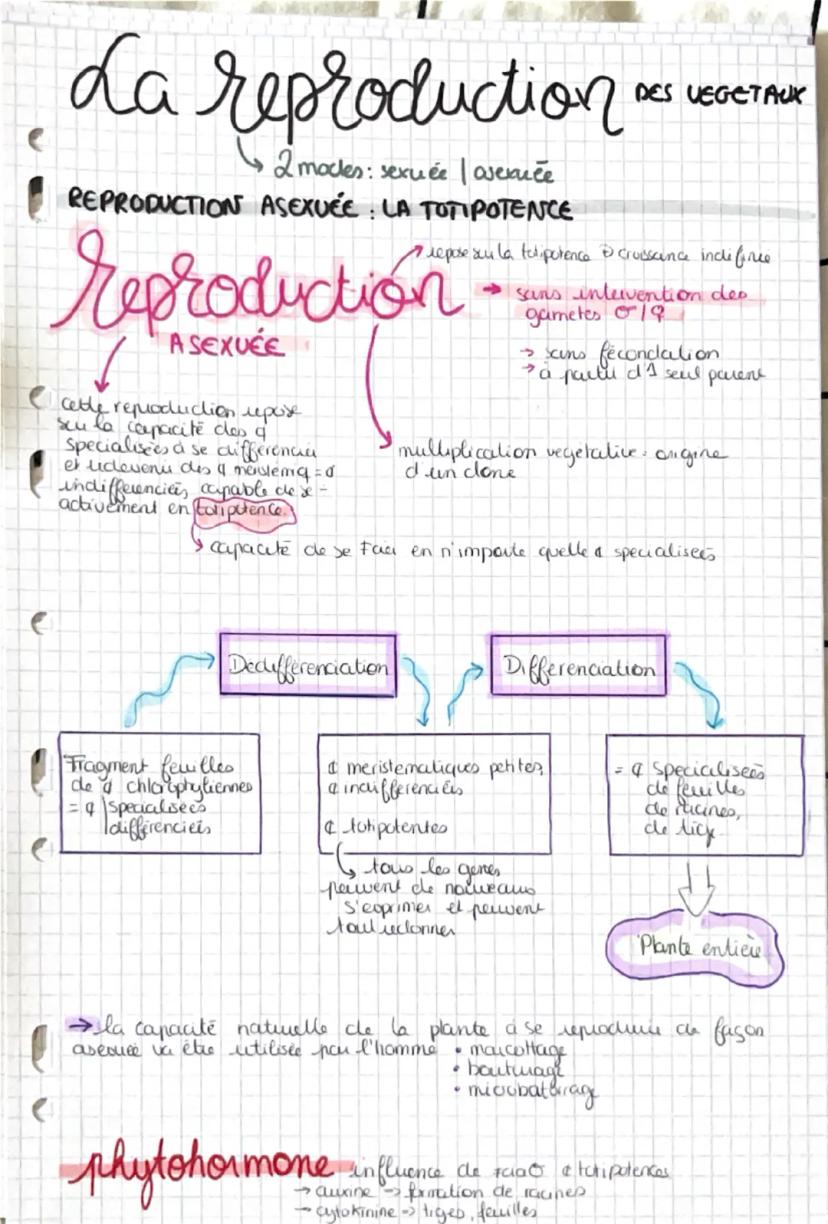 La reproduction DES VEGETAUX
2 modes : sexuée / asexuée
REPRODUCTION ASEXUÉE : LA TOTIPOTENCE
repose sur la totipotence croissance indéfinie
reproduction
ASEXUÉE
→ sans intervention des
gametes ♂/♀
→ sans fécondation
→ à partir d'1 seul parent
cette reproduction repose
sur la capacité des ¢
specialisées à se différencier
et redevenir des ¢ méristémq = ¢
indifférenciées capable de se
activement en totipotence.
multiplication vegetative : origine
d'un clone
capacité de se en n'importe quelle ¢ specialisées
Dédifférenciation
Différenciation
Fragment feuilles
de ¢ chlorophylliennes
= ¢ specialisées
différenciées
¢ meristematiques petites,
¢ indifférenciés
¢ totipotentes
tous les genes
peuvent de nouveaux
s'exprimer et peuvent
tout redonner
= ¢ Specialisées
de feuilles
de racines,
de tige
Plante entière
→ la capacité naturelle de la plante à se reproduire de façon
asexuée va être utilisée par l'homme
• marcottage
• bouturage
• microbouturag
phytohormone influence de ¢ totipotences
→ auxine → formation de racines
→ cytokinine → tiges, feuilles